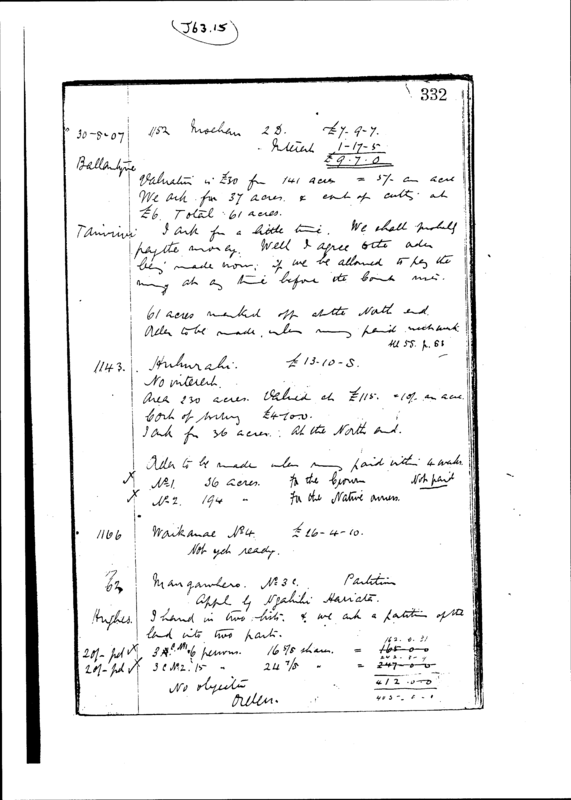 J63.15
332
30-8-07 1152 Moehau 2 D. £7-9-7.
Interest 1-17-5
£9.7.0
Ballantyne
Valuation is £30 for 141 acres = 5/- an acre
We ask for 37 acres & cost of cutting at
£6. Total 61 acres.
I ask for a little time. We shall probably
pay the money. Well I agree to the order
being made now, if we be allowed to pay the
money at any time before the Court
61 acres marked off at the North end.
Order to be made, unless money paid
p. 83
1143. Huhurahi. £13-10-5.
No interest.
Area 230 acres. Valued at £115. =10/- an acre.
Cost of £4-0-0.
I ask for 36 acres. At the North end.
Order to be made unless money paid within 4 weeks
x No 1. 36 acres. For the Crown Not paid
x No 2. 194 " For the Native owners.
1166 Waikanae No 4. £26-4-10.
Not yet ready.
62 Mangawhero. No 3c. Partition
Appl. by Ngahihi
Hughes. I hand in two lists. & we ask a partition of the
land into two parts.
20/- pd 6 persons. 16 5/8 shares. = 165-0-0
20/- pd 3c No 2. 15 " 24 7/8 " = 247-0-0
412-0-0
No objection
Order. 403-0-0